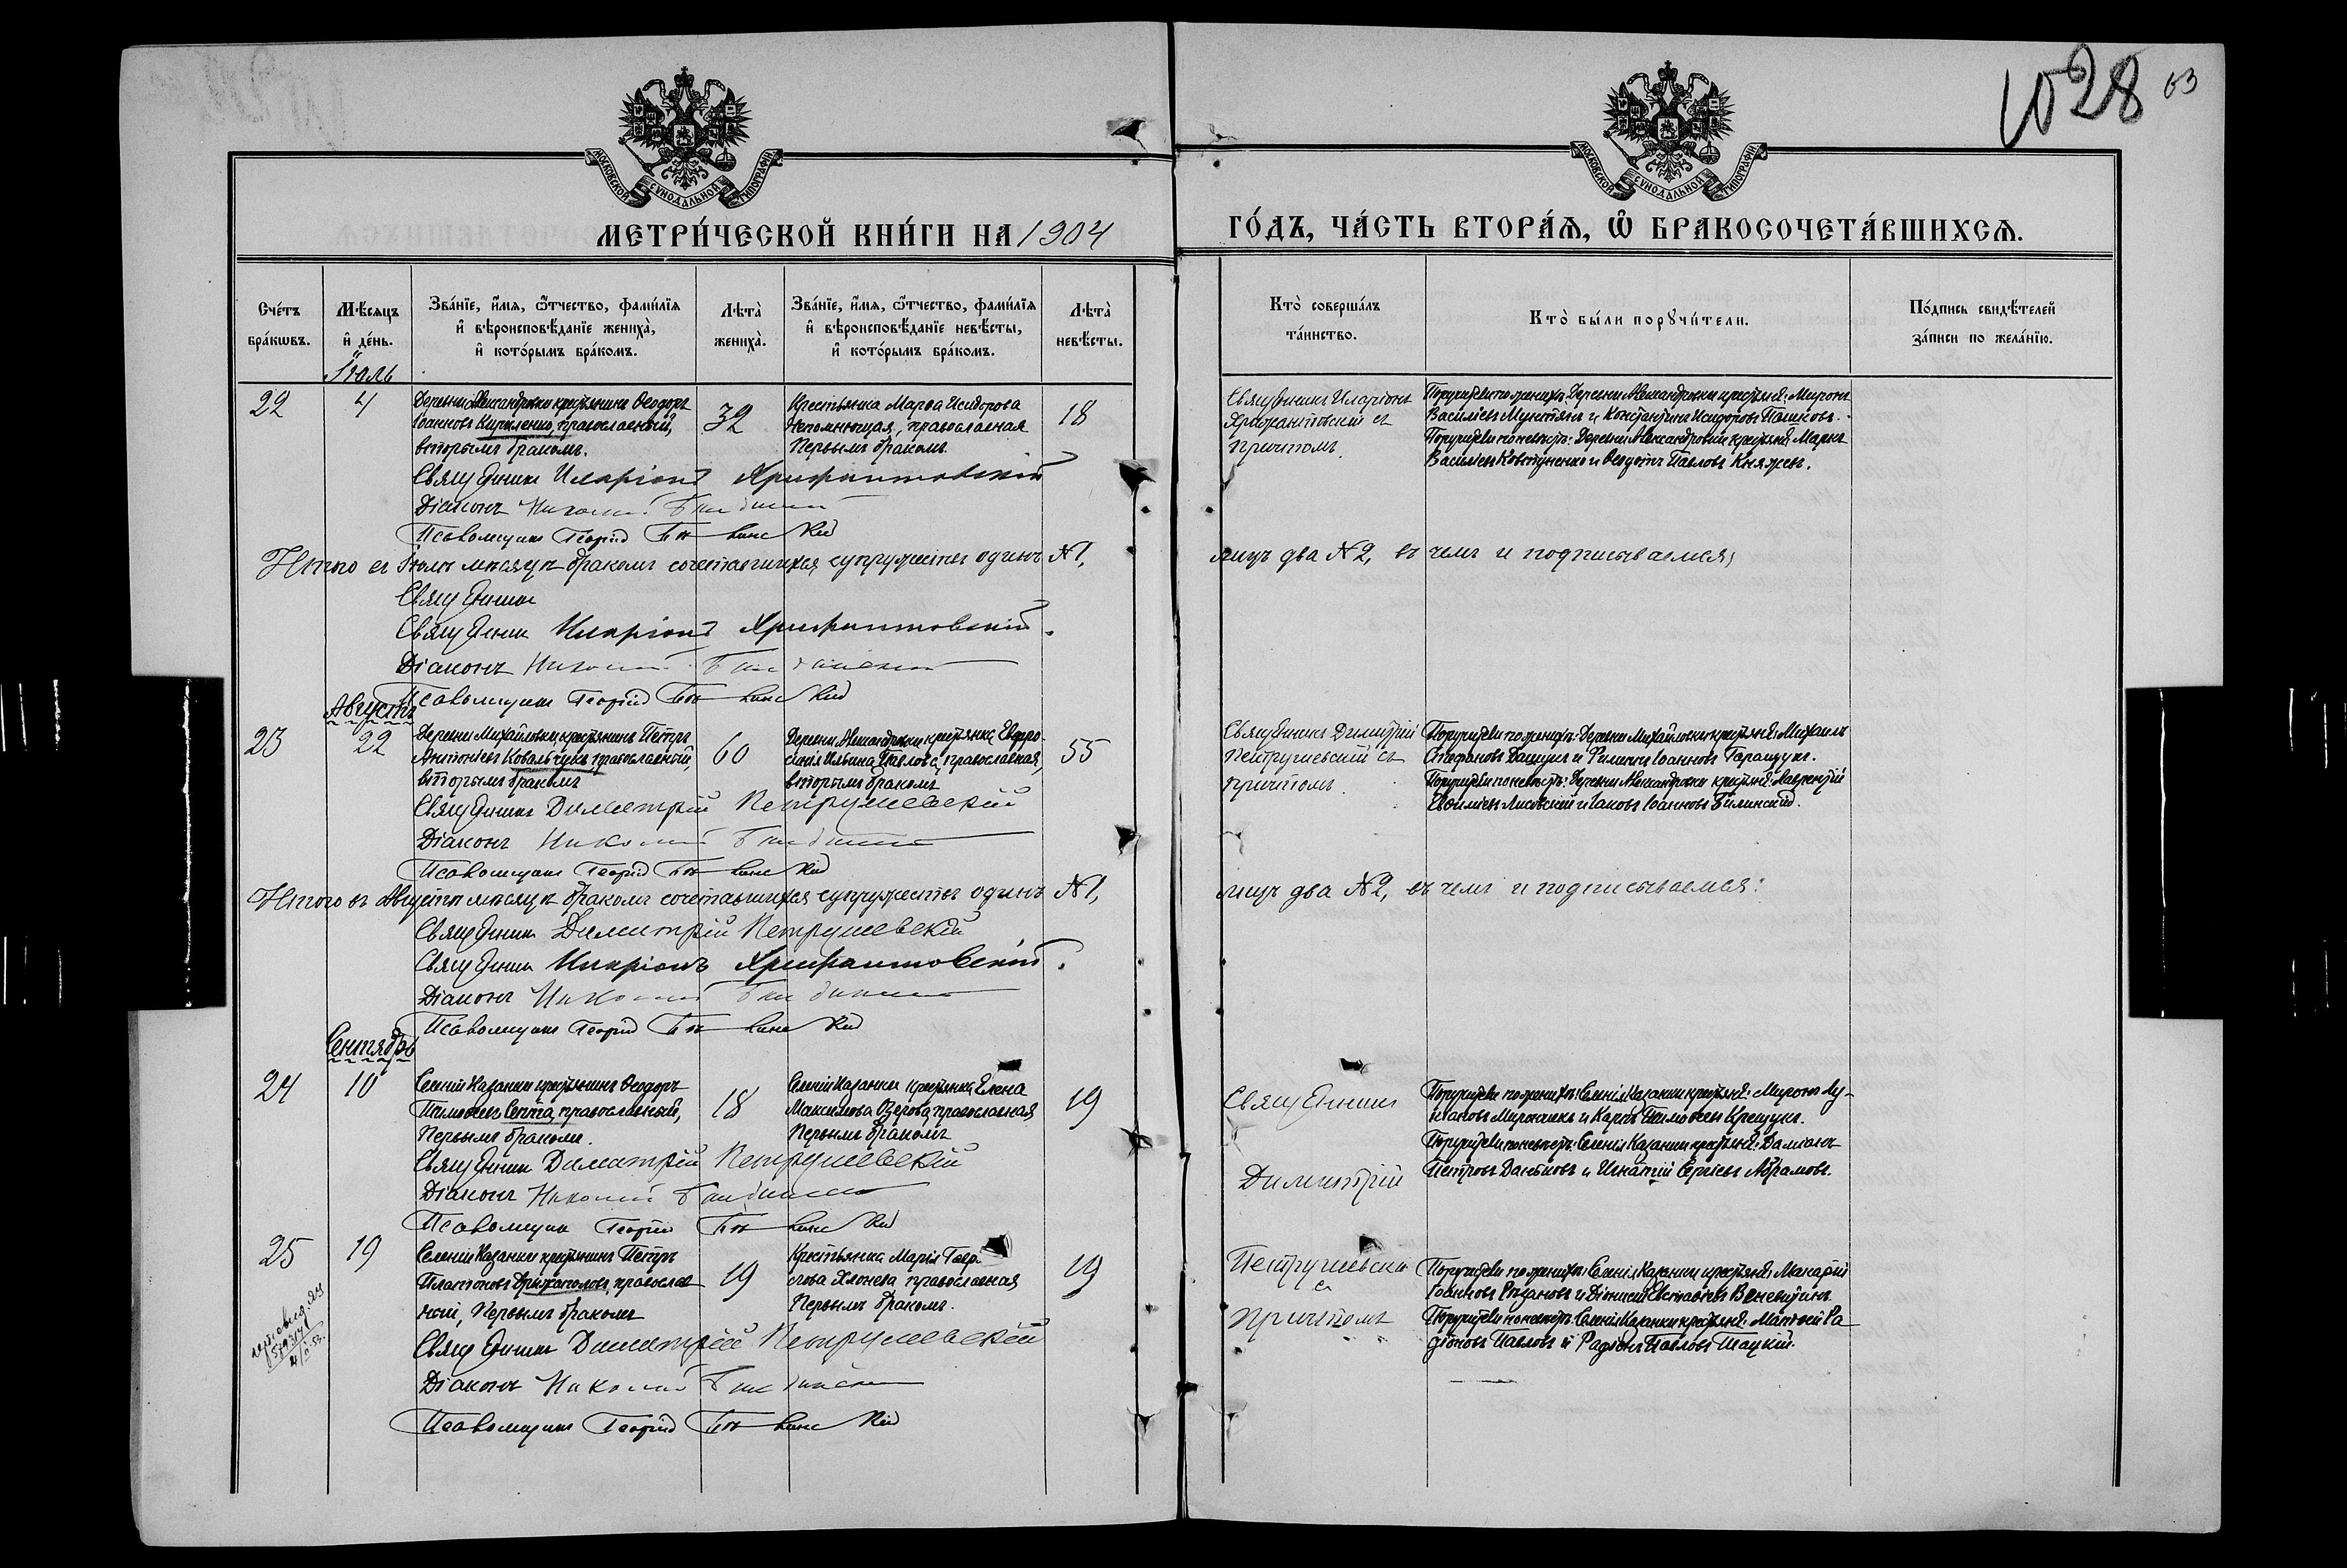 1028 63
МОСКОВСКОЙ СУНОДАЛЬНОЙ ТИПОГРАФІИ
МОСКОВСКОЙ СУНОДАЛЬНОЙ ТИПОГРАФІИ
МЕТРИ́ЧЕСКОЙ КНИ́ГИ НА 1904
ГО́ДЪ, ЧА́СТЬ ВТОРА́Я, Ѿ БРАКОСОЧЕТА́ВШИХСЯ.
Сче́тъ
бра́кѡвъ.
Мѣ́сяцъ
и҆ де́нь.
Зва́нїе, и҆́мя, ѻ҆́тчество, фами́лїя
и҆ вѣроисповѣ́данїе жениха̀,
и҆ кото́рымъ бра́комъ.
Лѣта̀
жениха̀.
Зва́нїе, и҆́мя, ѻ҆́тчество, фами́лїя
и҆ вѣроисповѣ́данїе невѣ́сты,
и҆ кото́рымъ бра́комъ.
Лѣта̀
невѣ́сты.
Кто̀ соверша́лъ
та́инство.
Кто̀ бы́ли порꙋчи́тели.
По́дпись свидѣ́телей
за́писи по жела́нїю.
Іюль
22
4
Деревни Александровки крестьянинъ Ѳеодоръ
Іоанновъ Кириленко, православный,
вторымъ бракомъ.
32
Крестьянка Марѳа Исидорова
Непомнющая, православная
Первымъ бракомъ.
18
Священникъ Иларіонъ
Хрисанѳовскій съ
причтомъ.
Поручители по женихѣ: Деревни Александровки крестьяне: Миронъ
Василіевъ Мунтянъ и Константинъ Исидоровъ Пашковъ.
Поручители по невѣстѣ: Деревни Александровки крестьяне: Маркъ
Василіевъ Ковтуненко и Ѳеодотъ Павловъ Княжевъ.
Священникъ Иларіонъ Хрисанѳовскій
Діаконъ Николай
Псаломщикъ Георгій
Итого въ Іюлѣ мѣсяцѣ бракомъ сочетавшихся супружествъ одинъ №1,
лицъ два №2, въ чемъ и подписываемся:
Священникъ
Священникъ Иларіонъ Хрисанѳовскій.
Діаконъ Николай
Псаломщикъ Георгій
Августъ
23
22
Деревни Михайловки, крестьянинъ Петръ
Антоніевъ Ковальчукъ православный,
вторымъ бракомъ
60
Деревни Александровки крестьянка Евфро-
синія Ильина Павлова, православная,
вторымъ бракомъ
55
Священникъ Димитрій
Петрушевскій съ
причтомъ.
Поручители по женихѣ: Деревни Михайловки крестьяне: Михаилъ
Стефановъ Дащукъ и Филиппъ Іоанновъ Таращукъ.
Поручители по невѣстѣ: Деревни Александровки крестьяне: Лаврентій
Евѳиміевъ Лисовскій и Іаковъ Іоанновъ Билинскій.
Священникъ Димитрій Петрушевскій
Діаконъ Николай
Псаломщикъ Георгій
Итого въ Августѣ мѣсяцѣ бракомъ сочетавшихся супружествъ одинъ №1,
лицъ два №2, въ чемъ и подписываемся:
Священникъ Димитрій Петрушевскій
Священникъ Иларіонъ Хрисанѳовскій.
Діаконъ Николай
Псаломщикъ Георгій
Сентябрь
24
10
Селенія Казанки крестьянинъ Ѳеодоръ
Тимоѳеевъ Септа, православный,
Первымъ бракомъ.
18
Селенія Казанки крестьянка Елена
Максимова Озерова, православная
Первымъ бракомъ
19
Священникъ
Димитрій
Поручители по женихѣ: Селенія Казанки крестьяне: Миронъ Лу-
кіановъ и Карпъ Тимоѳеевъ Крещукъ.
Поручители по невѣстѣ: Селенія Казанки крестьяне: Даміанъ
Петровъ Даньковъ и Игнатій Сергіевъ Абрамовъ.
Священникъ Димитрій Петрушевскій
Діаконъ Николай
Псаломщикъ Георгій
25
19
Селенія Казанки крестьянинъ Петръ
Платоновъ православ-
ный, Первымъ бракомъ
19
Крестьянка Марія
Хлонева православная
Первымъ бракомъ.
19
Петрушевскій
съ
Причтомъ
Поручители по женихѣ: Селенія Казанки крестьяне: Макарій
Іоанновъ Рязановъ и Діонисій Евстаѳіевъ
Поручители по невѣстѣ: Селенія Казанки крестьяне: Матѳей Ра-
діоновъ Павловъ и Радіонъ Павловъ Шацкій.
Священникъ Димитрій Петрушевскій
Діаконъ Николай
Псаломщикъ Георгій